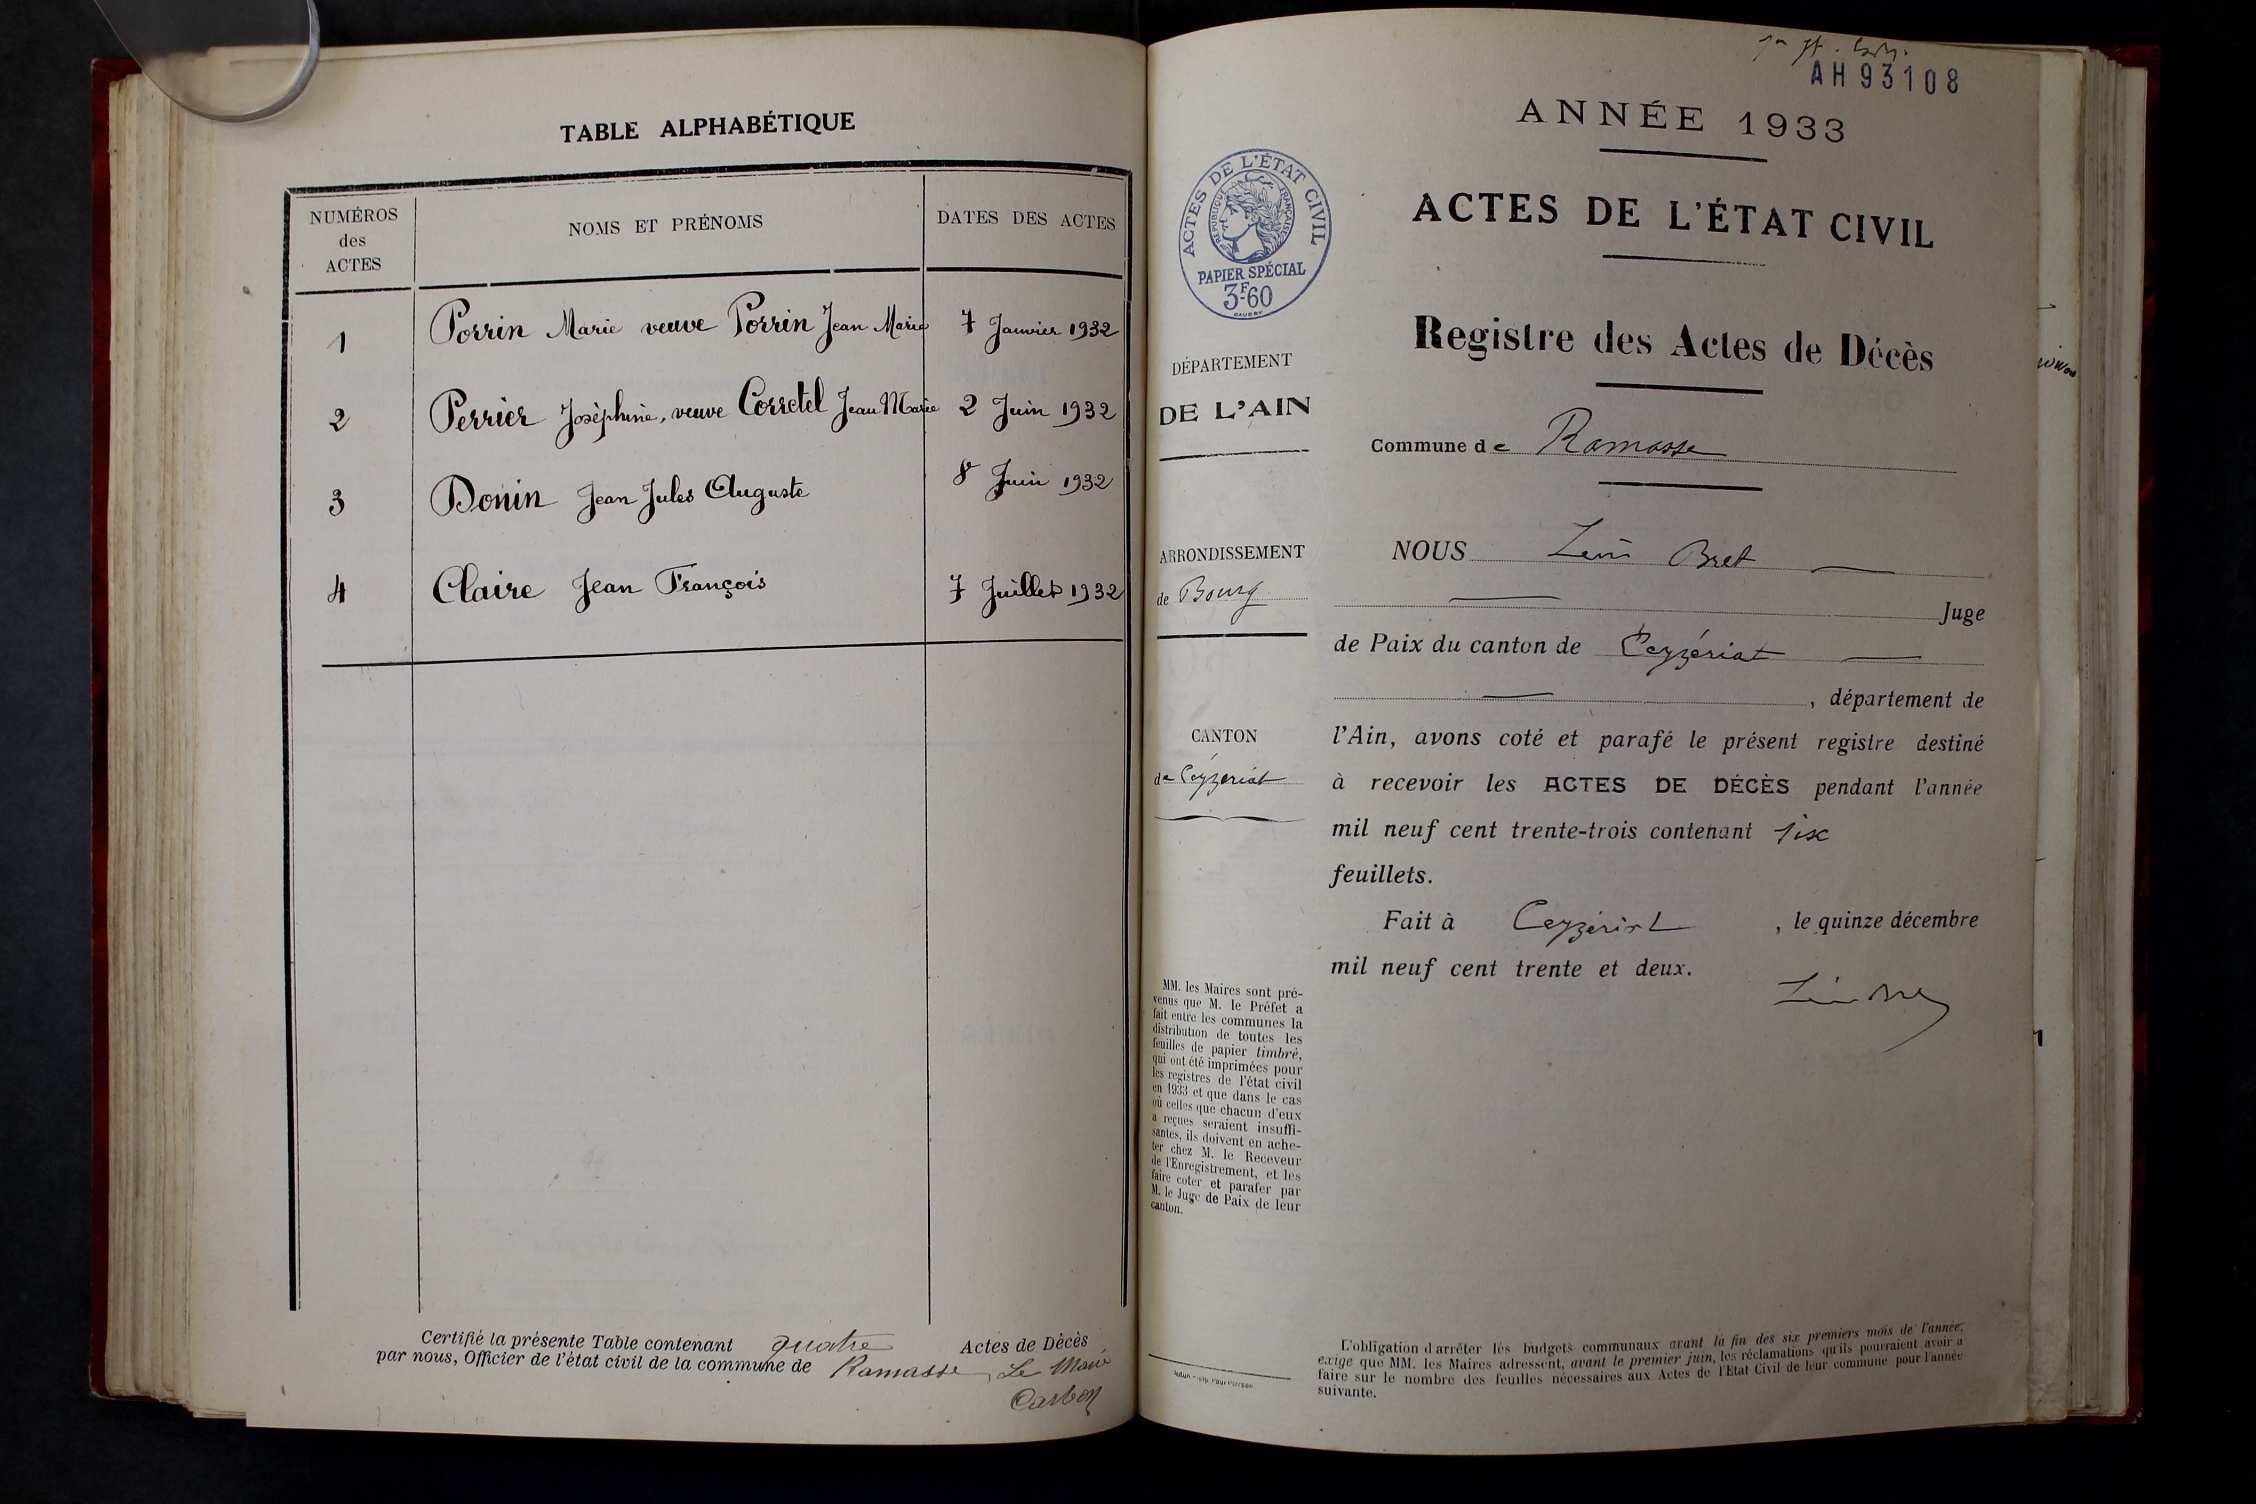 TABLE ALPHABÉTIQUE
NUMÉROS
des
ACTES
NOMS ET PRÉNOMS
DATES DES ACTES
1 Perrin Marie veuve Perrin Jean Marie 7 Janvier 1932
2 Perrier Joséphine, veuve Corretel Jean Marie 2 Juin 1932
3 Donin Jean Jules Auguste 8 Juin 1932
4 Claire Jean François 7 Juillet 1932
Certifié la présente Table contenant quatre Actes de Décès
par nous, Officier de l'état civil de la commune de Ramasse, Le Maire
AH93108
ANNÉE 1933
ACTES DE L'ÉTAT CIVIL
RÉPUBLIQUE FRANÇAISE
PAPIER SPÉCIAL
3F-60
ACTES DE L'ÉTAT CIVIL
Registre des Actes de Décès
DÉPARTEMENT
DE L'AIN
Commune de Ramasse
ARRONDISSEMENT
de Bourg
NOUS Léon Bret
Juge
de Paix du canton de Ceyzériat
, département de
CANTON
de Ceyzériat
l'Ain, avons coté et parafé le présent registre destiné
à recevoir les ACTES DE DÉCÈS pendant l'année
mil neuf cent trente-trois contenant six
feuillets.
Fait à Ceyzériat, le quinze décembre
mil neuf cent trente et deux.
MM. les Maires sont pré-
venus que M. le Préfet a
fait entre les communes la
distribution de toutes les
feuilles de papier timbré,
qui ont été imprimées pour
les registres de l'état civil
en 1933 et que dans le cas
où celles que chacun d'eux
a reçues seraient insuffi-
santes, ils doivent en ache-
ter chez M. le Receveur
de l'Enregistrement, et les
faire coter et parafer par
M. le Juge de Paix de leur
canton.
L'obligation d'arrêter les budgets communaux avant la fin des six premiers mois de l'année,
exige que MM. les Maires adressent, avant le premier juin, les réclamations qu'ils pourraient avoir à
faire sur le nombre des feuilles nécessaires aux Actes de l'Etat Civil de leur commune pour l'année
suivante.